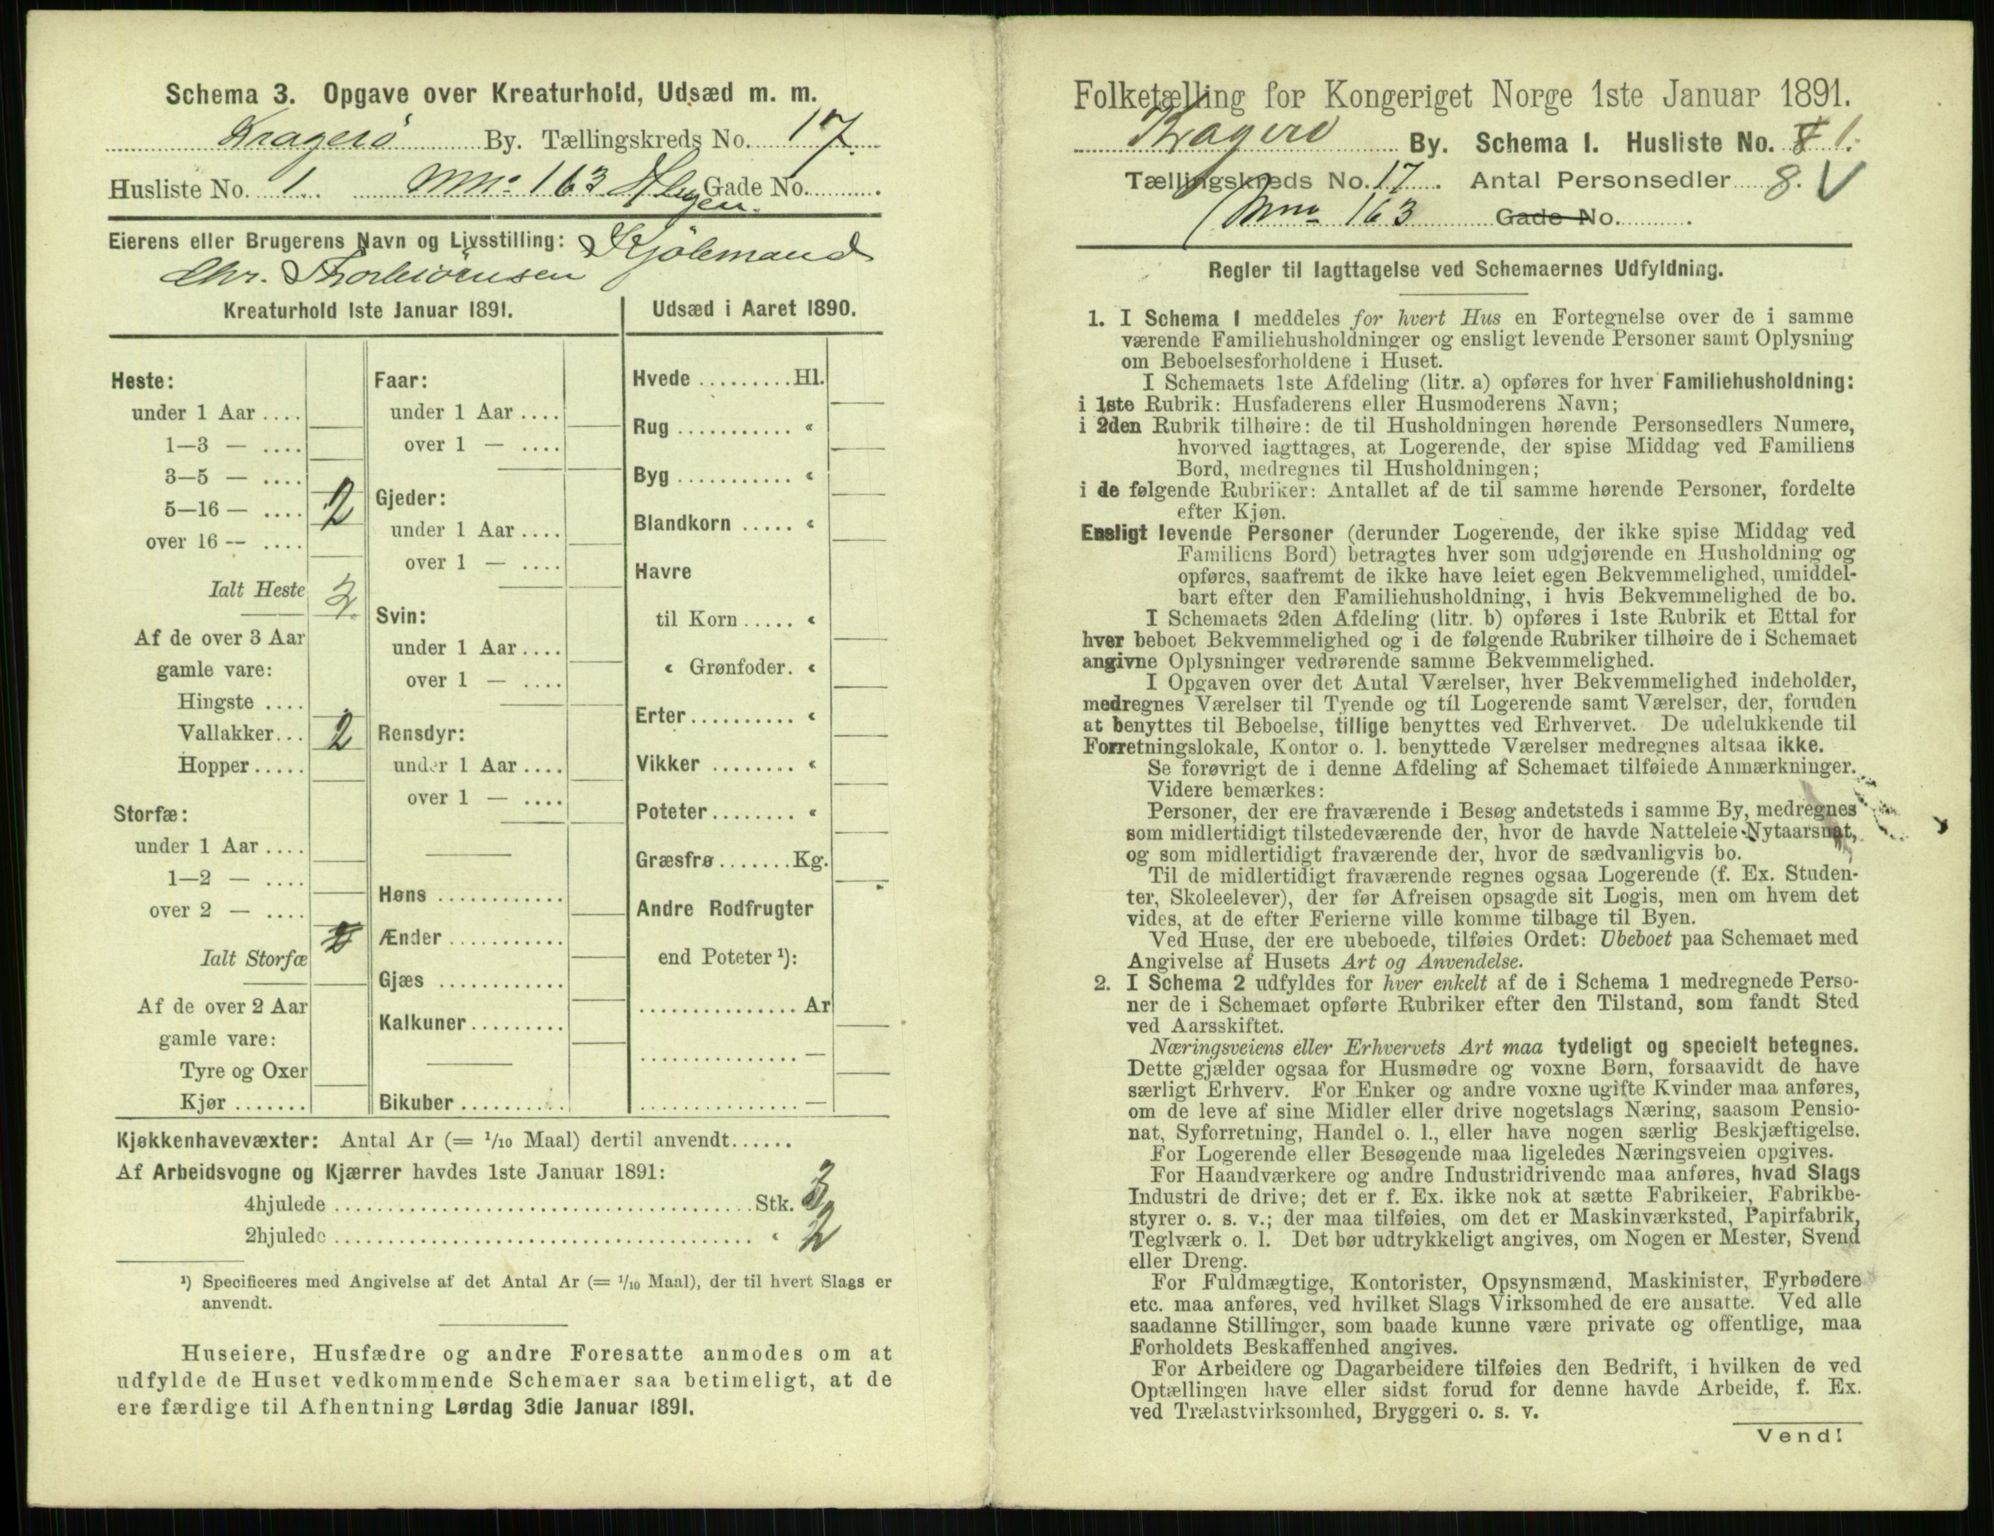 Schema 3. Opgave over Kreaturhold, Udsæd m. m.
Kragerö By. Tællingskreds No. 17.
Husliste No. 1. Mno 163 Gade No.
Eierens eller Brugerens Navn og Livsstilling: Kjöbmand
Chr. Thorbiörnsen
Kreaturhold 1ste Januar 1891.
Heste:
under 1 Aar ....
1—3 — ....
3—5 — ....
5—16 — .... 2
over 16 — ....
Ialt Heste 2
Af de over 3 Aar
gamle vare:
Hingste ....
Vallakker... 2
Hopper.....
Storfæ:
under 1 Aar ....
1—2 — ....
over 2 — ....
Ialt Storfæ
Af de over 2 Aar
gamle vare:
Tyre og Oxer
Kjør .......
Faar:
under 1 Aar ....
over 1 — ....
Gjeder:
under 1 Aar ....
over 1 — ....
Svin:
under 1 Aar ....
over 1 — ....
Rensdyr:
under 1 Aar ....
over 1 — ....
Høns ............
Ænder ..........
Gjæs ............
Kalkuner .........
Bikuber ..........
Udsæd i Aaret 1890.
Hvede .........Hl.
Rug ........... «
Byg ........... «
Blandkorn ..... «
Havre
til Korn ..... «
« Grønfoder. «
Erter.......... «
Vikker ........ «
Poteter........ «
Græsfrø .......Kg.
Andre Rodfrugter
end Poteter ¹):
............... Ar
............... —
............... —
Kjøkkenhavevæxter: Antal Ar (= 1/10 Maal) dertil anvendt......
Af Arbeidsvogne og Kjærrer havdes 1ste Januar 1891:
4hjulede ....................................Stk. 3
2hjulede .................................... « 2
¹) Specificeres med Angivelse af det Antal Ar (= 1/10 Maal), der til hvert Slags er
anvendt.
Huseiere, Husfædre og andre Foresatte anmodes om at
udfylde de Huset vedkommende Schemaer saa betimeligt, at de
ere færdige til Afhentning Lørdag 3die Januar 1891.
Folketælling for Kongeriget Norge 1ste Januar 1891.
Kragerö By. Schema I. Husliste No. 1.
Tællingskreds No. 17. Antal Personsedler 8. V
Mno 163 Gade No.
Regler til Iagttagelse ved Schemaernes Udfyldning.
1. I Schema 1 meddeles for hvert Hus en Fortegnelse over de i samme
værende Familiehusholdninger og ensligt levende Personer samt Oplysning
om Beboelsesforholdene i Huset.
I Schemaets 1ste Afdeling (litr. a) opføres for hver Familiehusholdning:
i 1ste Rubrik: Husfaderens eller Husmoderens Navn;
i 2den Rubrik tilhøire: de til Husholdningen hørende Personsedlers Numere,
hvorved iagttages, at Logerende, der spise Middag ved Familiens
Bord, medregnes til Husholdningen;
i de følgende Rubriker: Antallet af de til samme hørende Personer, fordelte
efter Kjøn.
Ensligt levende Personer (derunder Logerende, der ikke spise Middag ved
Familiens Bord) betragtes hver som udgjørende en Husholdning og
opføres, saafremt de ikke have leiet egen Bekvemmelighed, umiddel-
bart efter den Familiehusholdning, i hvis Bekvemmelighed de bo.
I Schemaets 2den Afdeling (litr. b) opføres i 1ste Rubrik et Ettal for
hver beboet Bekvemmelighed og i de følgende Rubriker tilhøire de i Schemaet
angivne Oplysninger vedrørende samme Bekvemmelighed.
I Opgaven over det Antal Værelser, hver Bekvemmelighed indeholder,
medregnes Værelser til Tyende og til Logerende samt Værelser, der, foruden
at benyttes til Beboelse, tillige benyttes ved Erhvervet. De udelukkende til
Forretningslokale, Kontor o. l. benyttede Værelser medregnes altsaa ikke.
Se forøvrigt de i denne Afdeling af Schemaet tilføiede Anmærkninger.
Videre bemærkes:
Personer, der ere fraværende i Besøg andetsteds i samme By, medregnes
som midlertidigt tilstedeværende der, hvor de havde Natteleie Nytaarsnat,
og som midlertidigt fraværende der, hvor de sædvanligvis bo.
Til de midlertidigt fraværende regnes ogsaa Logerende (f. Ex. Studen-
ter, Skoleelever), der før Afreisen opsagde sit Logis, men om hvem det
vides, at de efter Ferierne ville komme tilbage til Byen.
Ved Huse, der ere ubeboede, tilføies Ordet: Ubeboet paa Schemaet med
Angivelse af Husets Art og Anvendelse.
2. I Schema 2 udfyldes for hver enkelt af de i Schema 1 medregnede Perso-
ner de i Schemaet opførte Rubriker efter den Tilstand, som fandt Sted
ved Aarsskiftet.
Næringsveiens eller Erhvervets Art maa tydeligt og specielt betegnes.
Dette gjælder ogsaa for Husmødre og voxne Børn, forsaavidt de have
særligt Erhverv. For Enker og andre voxne ugifte Kvinder maa anføres,
om de leve af sine Midler eller drive nogetslags Næring, saasom Pensio-
nat, Syforretning, Handel o. l., eller have nogen særlig Beskjæftigelse.
For Logerende eller Besøgende maa ligeledes Næringsveien opgives.
For Haandværkere og andre Industridrivende maa anføres, hvad Slags
Industri de drive; det er f. Ex. ikke nok at sætte Fabrikeier, Fabrikbe-
styrer o. s. v.; der maa tilføies, om det er Maskinværksted, Papirfabrik,
Teglværk o. l. Det bør udtrykkeligt angives, om Nogen er Mester, Svend
eller Dreng.
For Fuldmægtige, Kontorister, Opsynsmænd, Maskinister, Fyrbødere
etc. maa anføres, ved hvilket Slags Virksomhed de ere ansatte. Ved alle
saadanne Stillinger, som baade kunne være private og offentlige, maa
Forholdets Beskaffenhed angives.
For Arbeidere og Dagarbeidere tilføies den Bedrift, i hvilken de ved
Optællingen have eller sidst forud for denne havde Arbeide, f. Ex.
ved Trælastvirksomhed, Bryggeri o. s. v.
Vend!